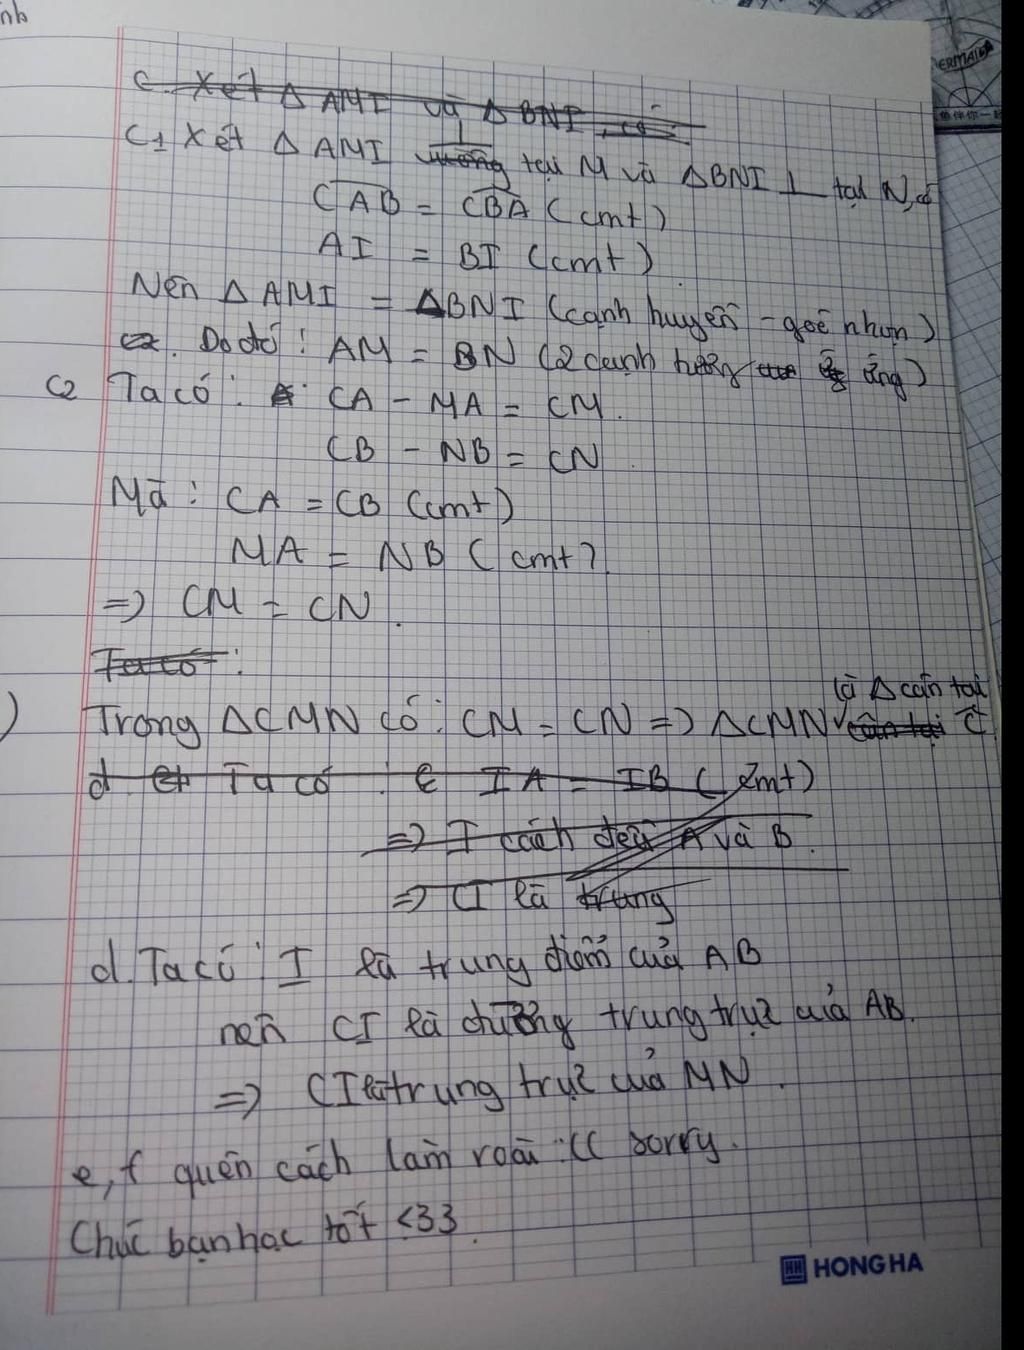 nh
ERMAIDA
c. Xét Δ AMI và Δ BNI có
C1 Xét Δ AMI ⊥ tại M và ΔBNI ⊥ tại N, có
CAB = CBA (cmt)
AI = BI (cmt)
Nên Δ AMI = ΔBNI (cạnh huyền - góc nhọn)
c2. Do đó : AM = BN (2 cạnh tương ứng)
C2 Ta có : CA - MA = CM.
CB - NB = CN
Mà : CA = CB (cmt)
MA = NB (cmt)
=> CM = CN.
Ta có :
là Δ cân tại
) Trong ΔCMN có : CM = CN => ΔCMN cân tại C
d. Ta có : IA = IB (cmt)
=> I cách đều A và B.
=> CI là trung
d. Ta có : I là trung điểm của AB
nên CI là đường trung trực của AB.
=> CI là trung trực của MN.
e, f quên cách làm roài :(( sorry.
Chúc bạn học tốt <33.
HH HONG HA